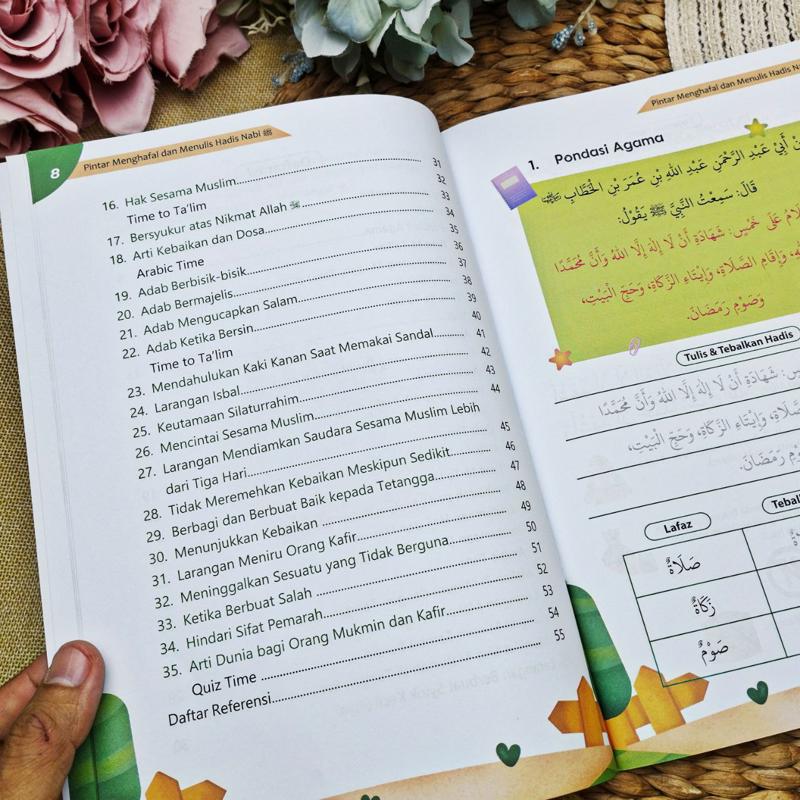 8 Pintar Menghafal dan Menulis Hadis Nabi ﷺ
16. Hak Sesama Muslim 31
Time to Ta'lim 32
17. Bersyukur atas Nikmat Allah ﷻ 33
18. Arti Kebaikan dan Dosa 34
Arabic Time 35
19. Adab Berbisik-bisik 36
20. Adab Bermajelis 37
21. Adab Mengucapkan Salam 38
22. Adab Ketika Bersin 39
Time to Ta'lim 40
23. Mendahulukan Kaki Kanan Saat Memakai Sandal 41
24. Larangan Isbal 42
25. Keutamaan Silaturrahim 43
26. Mencintai Sesama Muslim 44
27. Larangan Mendiamkan Saudara Sesama Muslim Lebih
dari Tiga Hari 45
28. Tidak Meremehkan Kebaikan Meskipun Sedikit 46
29. Berbagi dan Berbuat Baik kepada Tetangga 47
30. Menunjukkan Kebaikan 48
31. Larangan Meniru Orang Kafir 49
32. Meninggalkan Sesuatu yang Tidak Berguna 50
33. Ketika Berbuat Salah 51
34. Hindari Sifat Pemarah 52
35. Arti Dunia bagi Orang Mukmin dan Kafir 53
Quiz Time 54
Daftar Referensi 55
Pintar Menghafal dan Menulis Hadis
1. Pondasi Agama
أَبِيْ عَبْدِ الرَّحْمٰنِ عَبْدِ اللهِ بْنِ عُمَرَ بْنِ الْخَطَّابِ
قَالَ: سَمِعْتُ النَّبِيَّ ﷺ يَقُوْلُ:
عَلَى خَمْسٍ: شَهَادَةِ أَنْ لَا إِلٰهَ إِلَّا اللهُ وَأَنَّ مُحَمَّدًا
وَإِقَامِ الصَّلَاةِ، وَإِيْتَاءِ الزَّكَاةِ، وَحَجِّ الْبَيْتِ،
وَصَوْمِ رَمَضَانَ.
Tulis & Tebalkan Hadis
شَهَادَةِ أَنْ لَا إِلٰهَ إِلَّا اللهُ وَأَنَّ مُحَمَّدًا
وَإِيْتَاءِ الزَّكَاةِ، وَحَجِّ الْبَيْتِ،
رَمَضَانَ.
Lafaz
صَلَاةٌ
زَكَاةٌ
صَوْمٌ